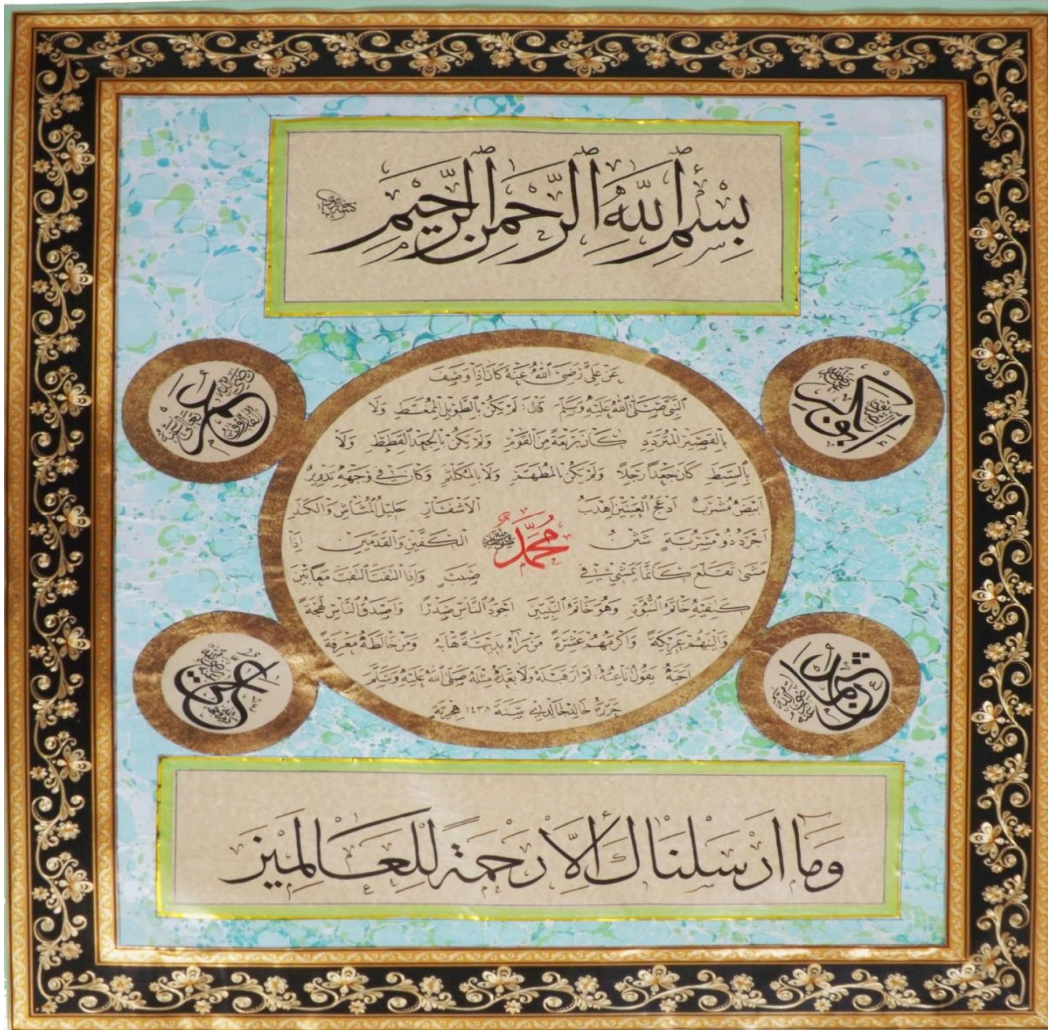 بِسْمِ اللهِ الرَّحْمٰنِ الرَّحِيمِ
أبو بكر
عمر
عَنْ عَلِيٍّ رَضِيَ اللهُ عَنْهُ كَانَ إِذَا وَصَفَ
النَّبِيَّ صَلَّى اللهُ عَلَيْهِ وَسَلَّمَ قَالَ: لَمْ يَكُنْ بِالطَّوِيلِ الْمُمَغَّطِ وَلَا
بِالْقَصِيرِ الْمُتَرَدِّدِ كَانَ رَبْعَةً مِنَ الْقَوْمِ وَلَمْ يَكُنْ بِالْجَعْدِ الْقَطَطِ وَلَا
بِالسَّبِطِ كَانَ جَعْدًا رَجِلًا وَلَمْ يَكُنْ بِالْمُطَهَّمِ وَلَا بِالْمُكَلْثَمِ وَكَانَ فِي وَجْهِهِ تَدْوِيرٌ
أَبْيَضُ مُشْرَبٌ أَدْعَجُ الْعَيْنَيْنِ أَهْدَبُ الْأَشْفَارِ جَلِيلُ الْمُشَاشِ وَالْكَتَدِ
أَجْرَدُ ذُو مَسْرُبَةٍ شَثْنُ مُحَمَّد الْكَفَّيْنِ وَالْقَدَمَيْنِ إِذَا
مَشَى تَقَلَّعَ كَأَنَّمَا يَمْشِي فِي صَبَبٍ وَإِذَا الْتَفَتَ الْتَفَتَ مَعًا بَيْنَ
كَتِفَيْهِ خَاتَمُ النُّبُوَّةِ وَهُوَ خَاتَمُ النَّبِيِّينَ أَجْوَدُ النَّاسِ صَدْرًا وَأَصْدَقُ النَّاسِ لَهْجَةً
وَأَلْيَنُهُمْ عَرِيكَةً وَأَكْرَمُهُمْ عِشْرَةً مَنْ رَآهُ بَدِيهَةً هَابَهُ وَمَنْ خَالَطَهُ مَعْرِفَةً
أَحَبَّهُ يَقُولُ نَاعِتُهُ: لَمْ أَرَ قَبْلَهُ وَلَا بَعْدَهُ مِثْلَهُ صَلَّى اللهُ عَلَيْهِ وَسَلَّمَ
حَرَّرَهُ خَالِد خَالِدِي سَنَةَ ١٤٣٨ هِجْرِيَّة
عثمان
وَمَا أَرْسَلْنَاكَ إِلَّا رَحْمَةً لِلْعَالَمِينَ